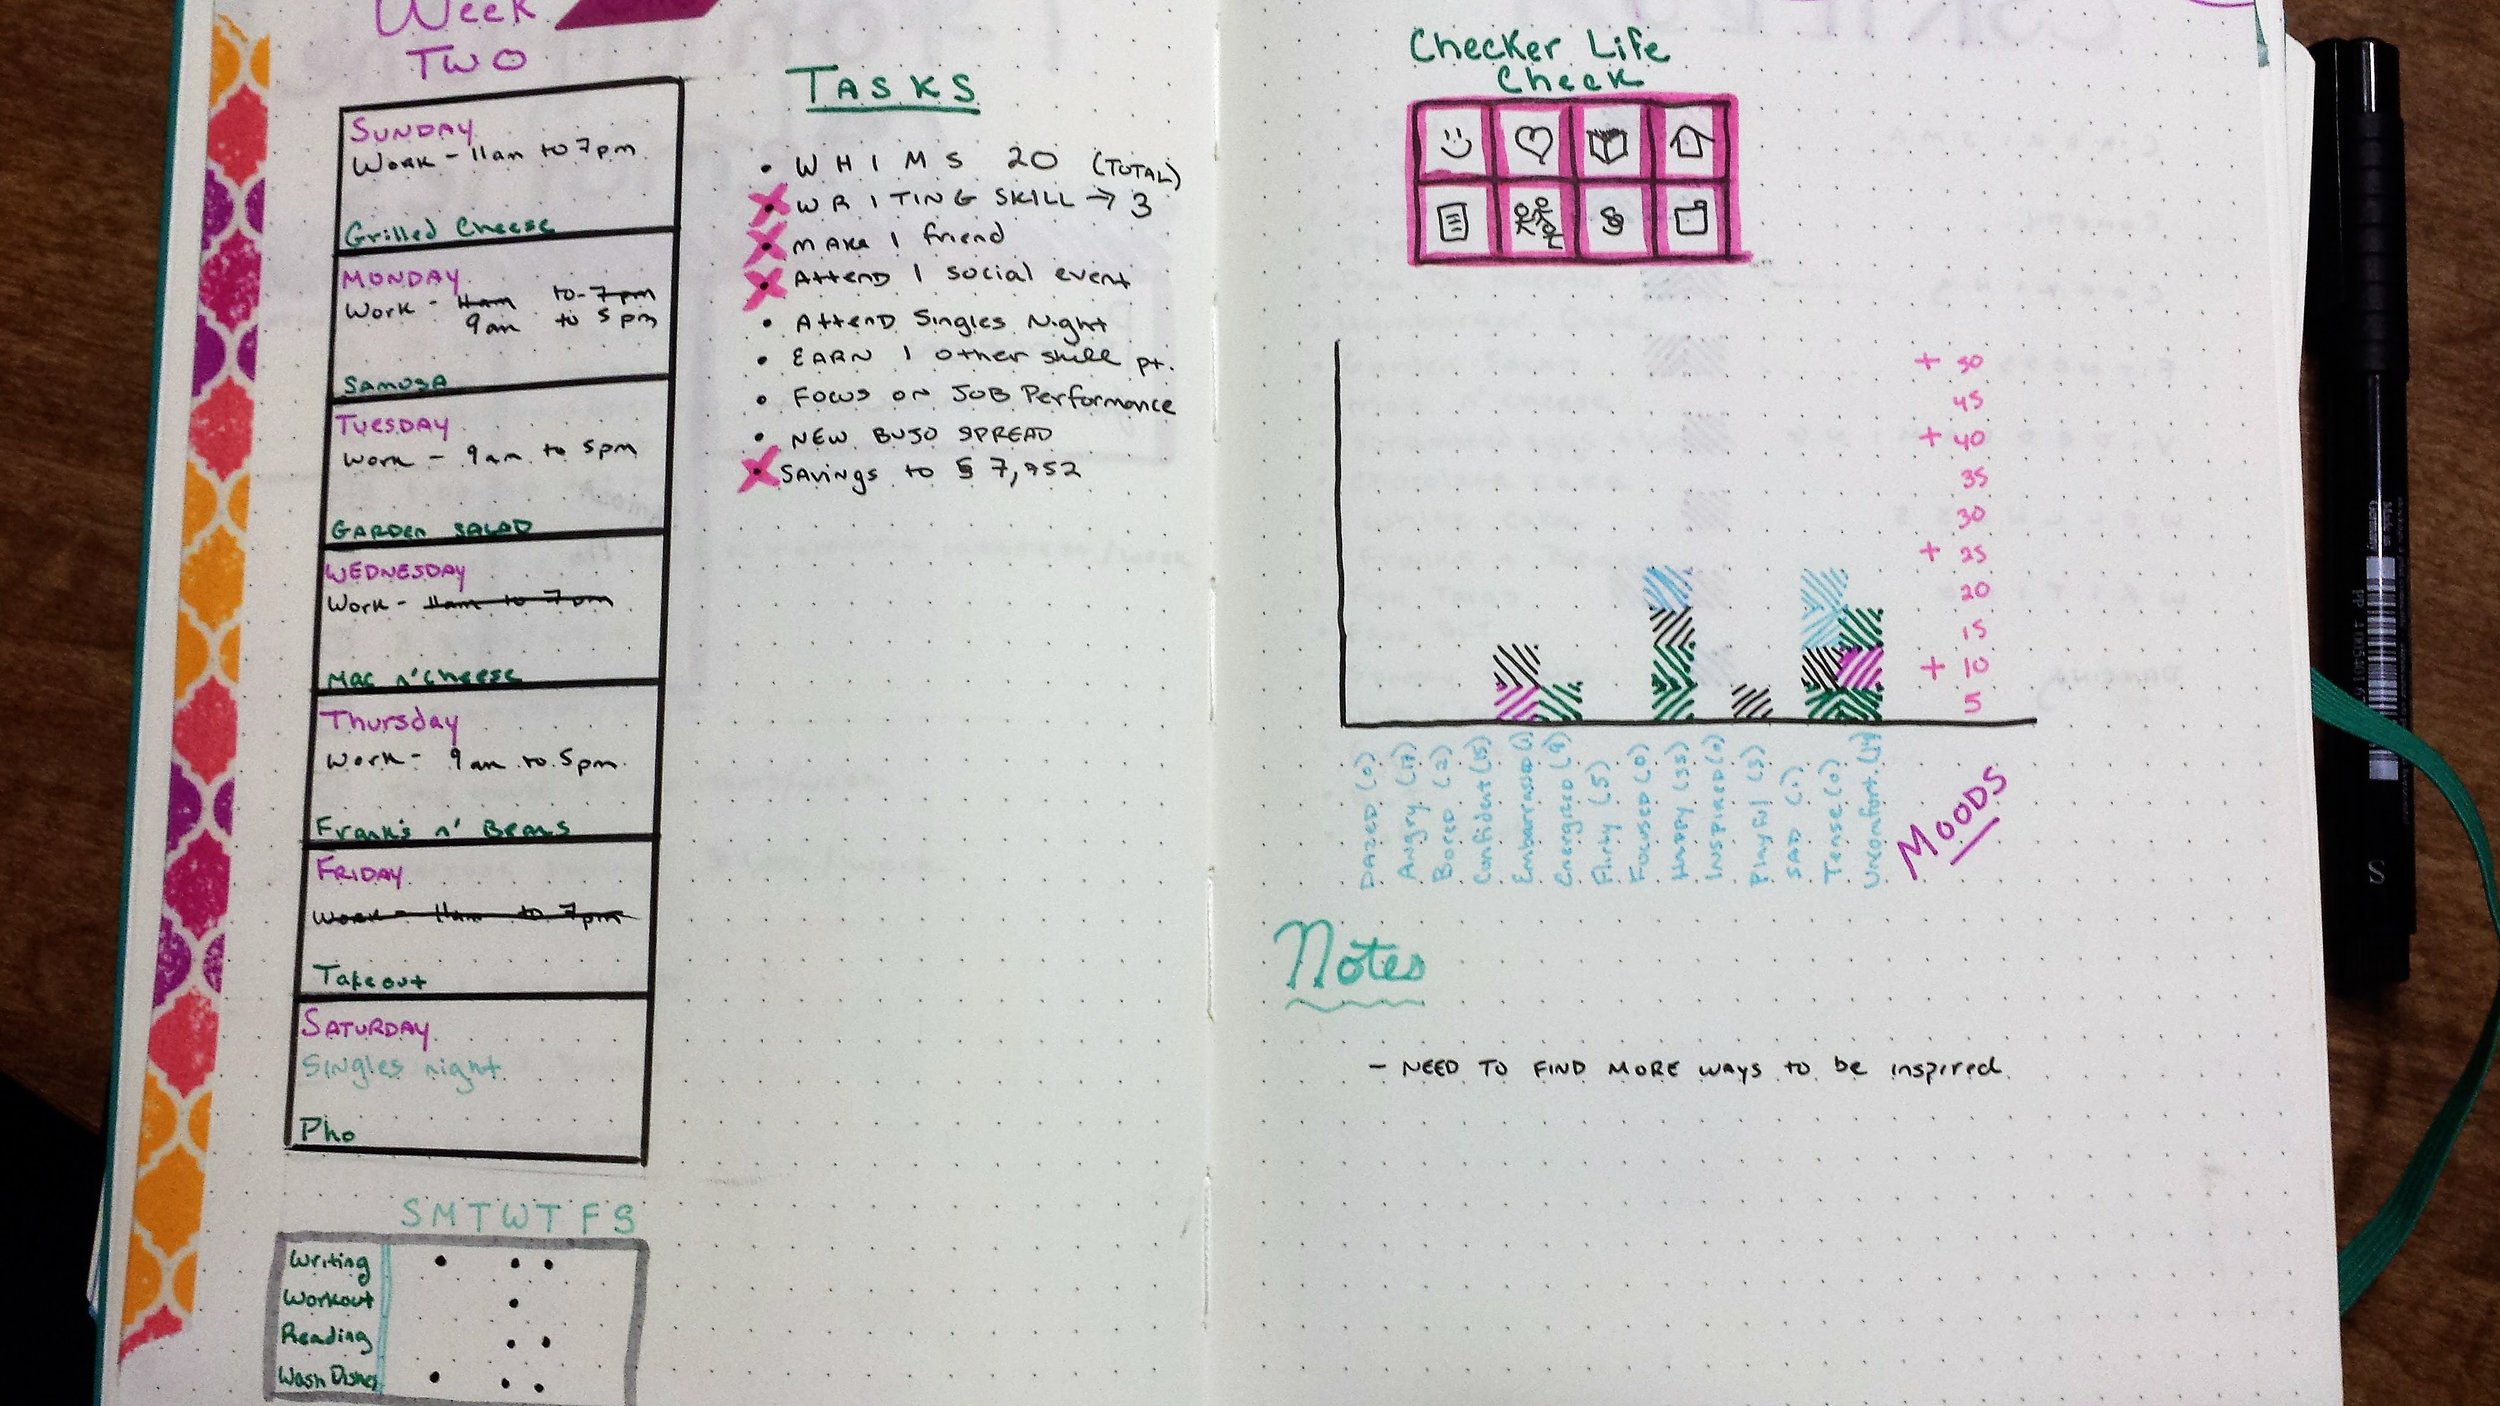 Week
TWO
SUNDAY
Work - 11am to 7pm
Grilled Cheese
MONDAY
Work - 11am to 7pm
9am to 5pm
Samosa
TUESDAY
Work - 9am to 5pm
GARDEN SALAD
WEDNESDAY
Work - 11am to 7pm
Mac n' Cheese
Thursday
Work - 9am to 5pm
Frank's n' Beans
FRIDAY
Work - 11am to 7pm
Takeout
SATURDAY
Singles night
Pho
S M T W T F S
Writing
Workout
Reading
Wash Dishes
TASKS
• WHIMS 20 (TOTAL)
• WRITING SKILL → 3
• MAKE 1 friend
• Attend 1 social event
• Attend Singles Night
• EARN 1 other skill pt.
• Focus on JOB Performance
• NEW BUJO SPREAD
• SAVINGS to § 7,952
Checker Life
Check
+ 50
45
+ 40
35
30
+ 25
20
15
+ 10
5
DAZED (0)
Angry (17)
Bored (2)
Confident (15)
Embarrassed (1)
Energized (9)
Flirty (5)
Focused (0)
HAPPY (35)
INSPIRED (0)
Playful (3)
SAD (1)
Tense (0)
Uncomfort. (14)
MOODS
Notes
- NEED TO FIND MORE WAYS to be inspired